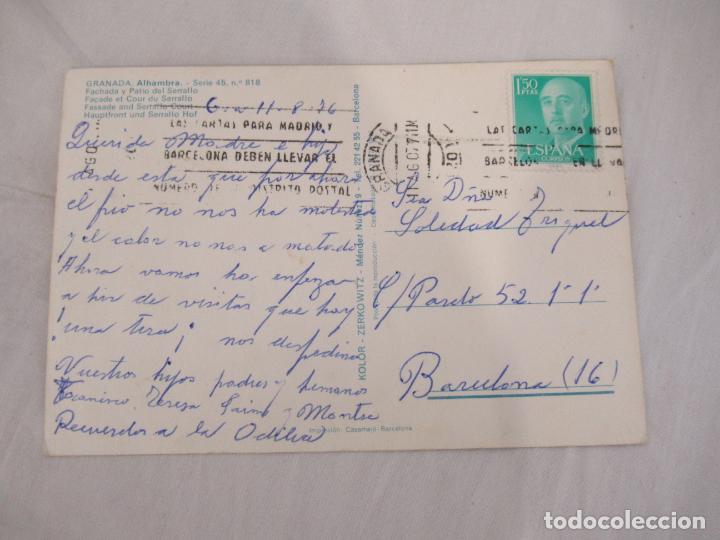 GRANADA. Alhambra. - Serie 45, n.º 818
Fachada y Patio del Serrallo
Façade et Cour du Serrallo
Fassade and Serrallo Court
Hauptfront und Serrallo Hof
11-8-76
LAS CARTAS PARA MADRID Y
BARCELONA DEBEN LLEVAR EL
NUMERO DISTRITO POSTAL
Querida Madre e hijo
desde esta que por ahora
el frio no nos ha molestado
y el calor no nos a matado
Ahira vamos ha enpeza
a hir de visitas que hay
¡una tira¡ nos despedimos
Vuestros hijos padres y hemanos
Teresa Jaime y Montse
Recuerdos a la Odilia
KOLOR - ZERKOWITZ - Méndez Núñez, 9 - Tel. 221 42 55 - Barcelona
Prohibida la reproducción
Impresión: Casamajó-Barcelona
GRANADA
1'50
PTAS
ESPAÑA
CORREOS
LAS CARTAS PARA MADRID
BARCELON EN LLEVA
NUME
Sra Dña
Soledad Triguel
C/ Pardo 52 1º 1ª
Barcelona (16)
todocoleccion.net